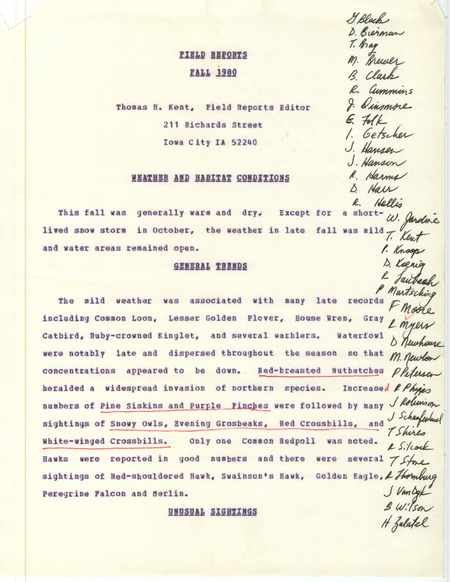 FIELD REPORTS
FALL 1980
Thomas H. Kent, Field Reports Editor
211 Richards Street
Iowa City IA 52240
WEATHER AND HABITAT CONDITIONS
This fall was generally warm and dry. Except for a short-
lived snow storm in October, the weather in late fall was mild
and water areas remained open.
GENERAL TRENDS
The mild weather was associated with many late records
including Common Loon, Lesser Golden Plover, House Wren, Gray
Catbird, Ruby-crowned Kinglet, and several warblers. Waterfowl
were notably late and dispersed throughout the season so that
concentrations appeared to be down. Red-breasted Nuthatches
heralded a widespread invasion of northern species. Increased
numbers of Pine Siskins and Purple Finches were followed by many
sightings of Snowy Owls, Evening Grosbeaks, Red Crossbills, and
White-winged Crossbills. Only one Common Redpoll was noted.
Hawks were reported in good numbers and there were several
sightings of Red-shouldered Hawk, Swainson's Hawk, Golden Eagle,
Peregrine Falcon and Merlin.
UNUSUAL SIGHTINGS
G Black
D. Bierman
T. Bray
M. Brewer
B. Clark
R. Cummins
J. Dinsmore
E. Folk
I. Getscher
J. Hansen
J. Hanson
R. Harms
D. Harr
R. Hollis
W. Jardine
T. Kent
P. Knoop
D. Koenig
R. Laubach
P Martsching
F Moore
R Myers
D Newhouse
M. Newlon
P Petersen
R Phipps
J Robinson
J Schaufenbuel
T Shires
R Silcock
T Stone
R Thornburg
J Van Dyk
B Wilson
H Zaletel